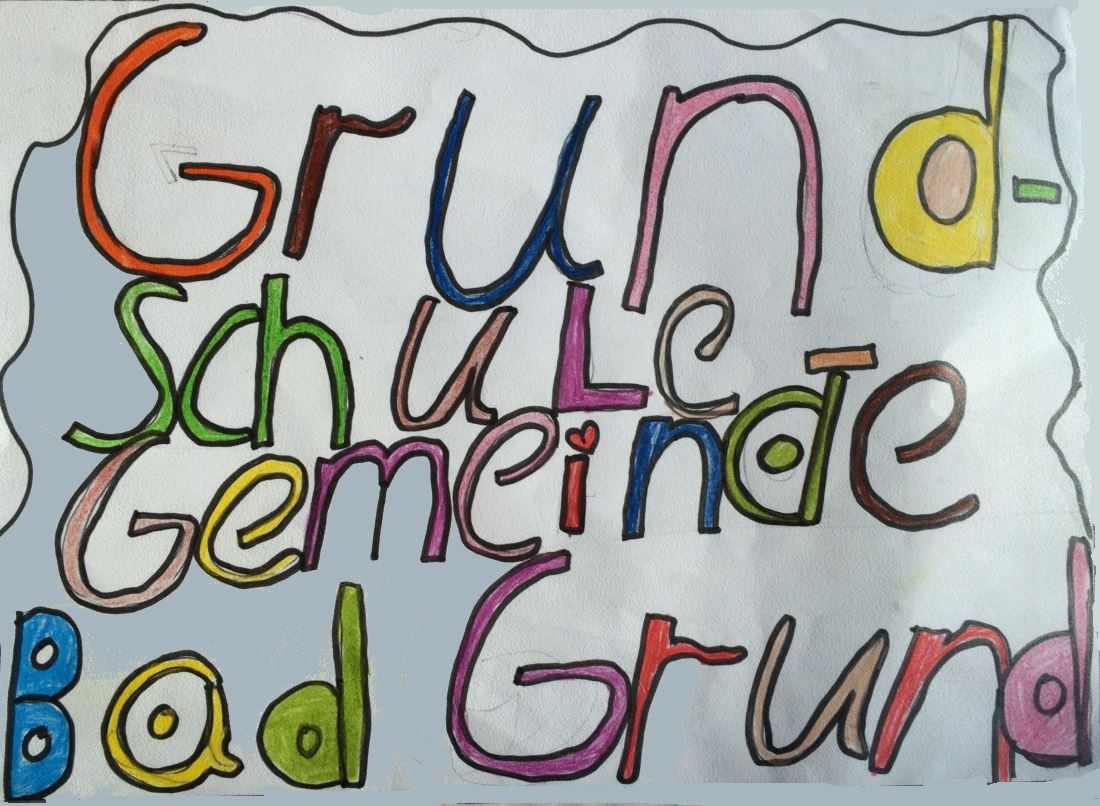 Grund-
SchuLe
Gemeinde
Bad Grund